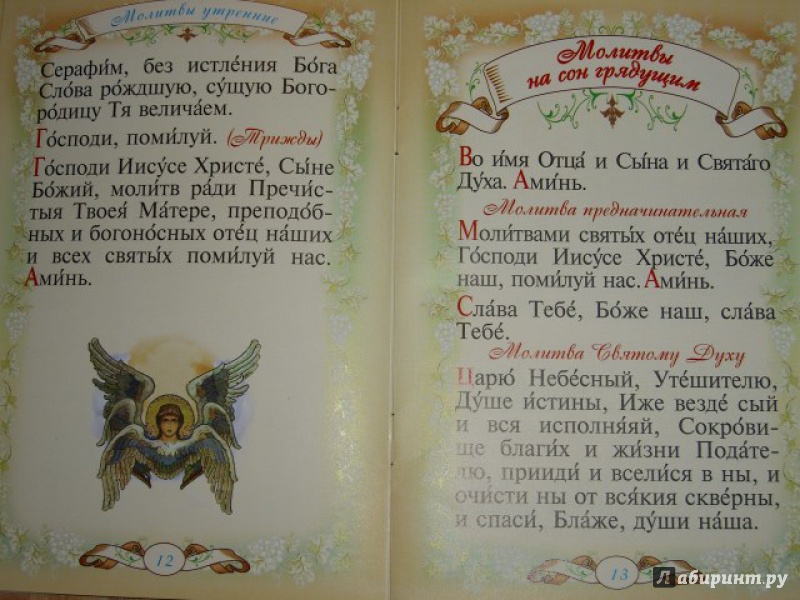 Молитвы утренние
Серафи́м, без истле́ния Бо́га
Сло́ва ро́ждшую, су́щую Бого-
ро́дицу Тя велича́ем.
Го́споди, поми́луй. (Трижды)
Го́споди Иису́се Христе́, Сы́не
Бо́жий, моли́тв ра́ди Пречи́с-
тыя Твоея́ Ма́тере, преподо́б-
ных и богоно́сных оте́ц на́ших
и всех святы́х поми́луй нас.
Ами́нь.
12
Молитвы
на сон грядущим
Во и́мя Отца́ и Сы́на и Свята́го
Ду́ха. Ами́нь.
Молитва предначинательная
Моли́твами святы́х оте́ц на́ших,
Го́споди Иису́се Христе́, Бо́же
наш, поми́луй нас. Ами́нь.
Сла́ва Тебе́, Бо́же наш, сла́ва
Тебе́.
Молитва Святому Духу
Царю́ Небе́сный, Уте́шителю,
Ду́ше и́стины, Иже везде́ сый
и вся исполня́яй, Сокро́ви-
ще благи́х и жи́зни Пода́те-
лю, прииди́ и всели́ся в ны, и
очи́сти ны от вся́кия скве́рны,
и спаси́, Бла́же, ду́ши на́ша.
13
Лабиринт.ру